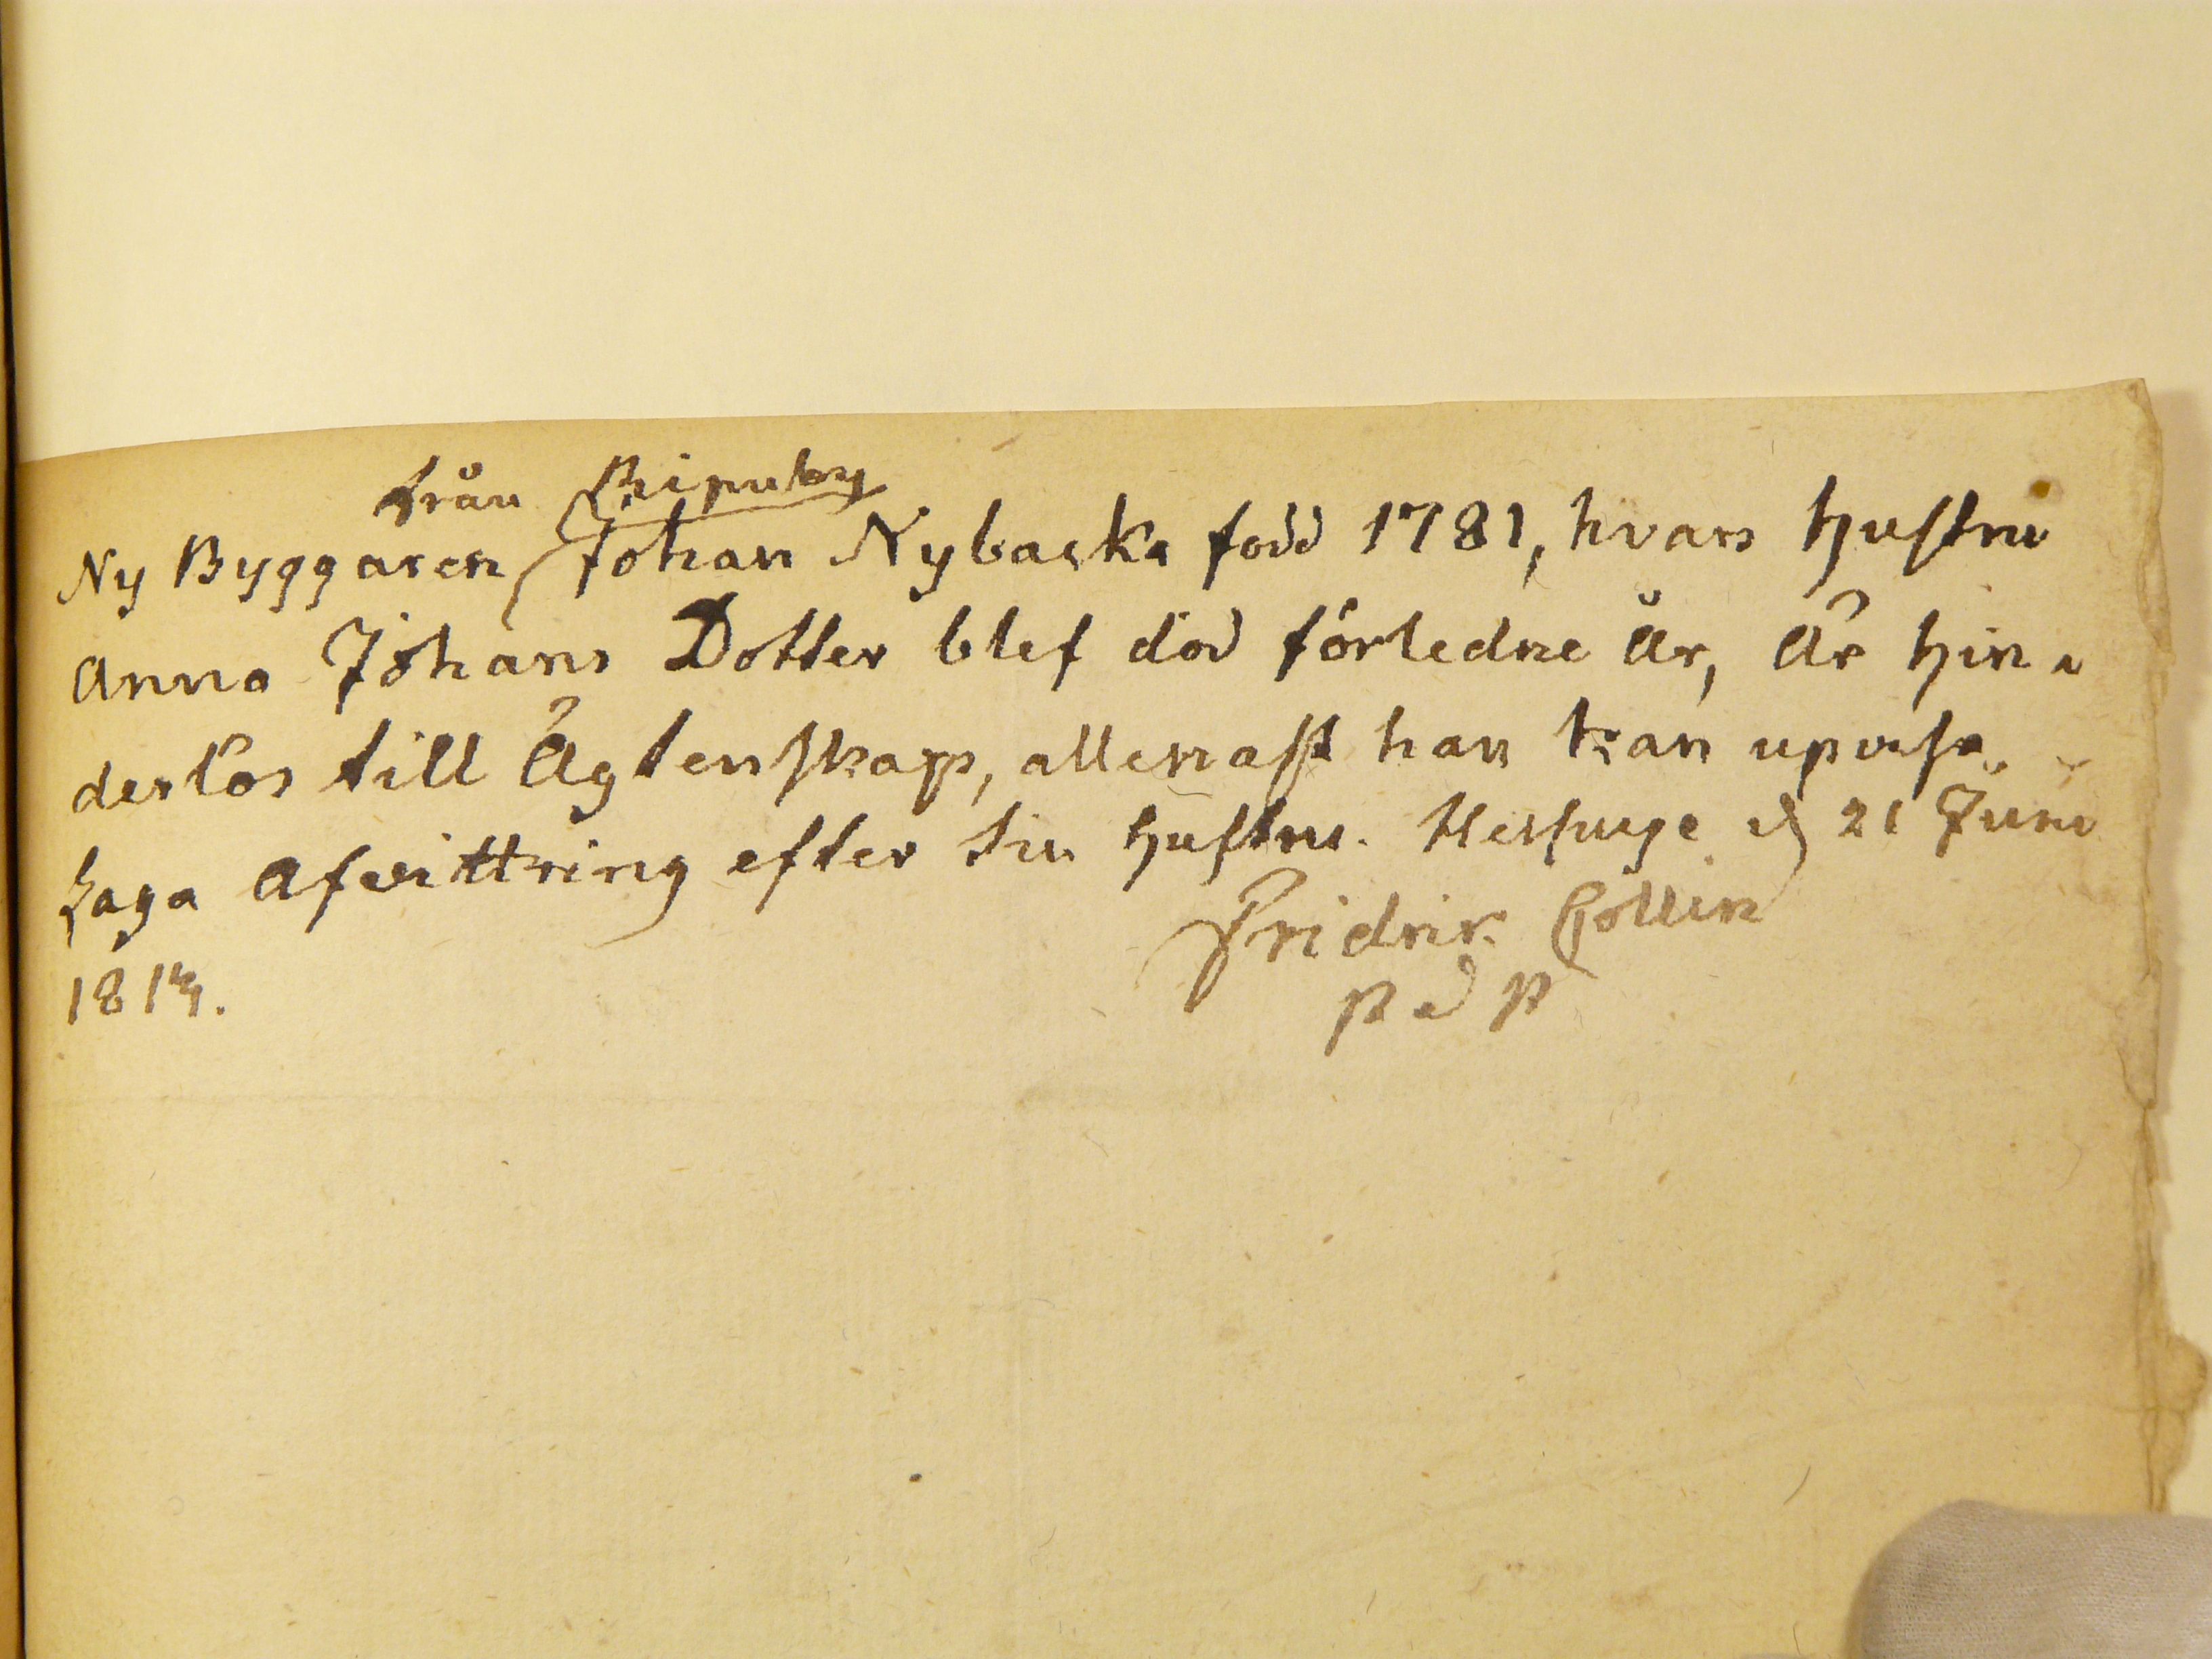 från Ripuby
Ny Byggaren Johan Nybacka född 1781, hvars Hustru
Anna Johans Dotter blef död förledne År, Är hin-
derlös till Ägtenskap, allenast han kan upvisa
Laga Afvittring efter sin Hustru. d 21 Juni
Fridrik Collin
1814.
P d P